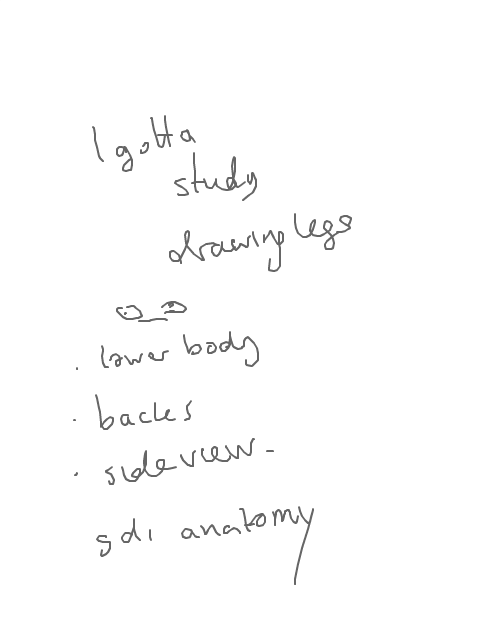 I gotta
study
drawing legs
. lower body
. backs
. side view -
gdi anatomy